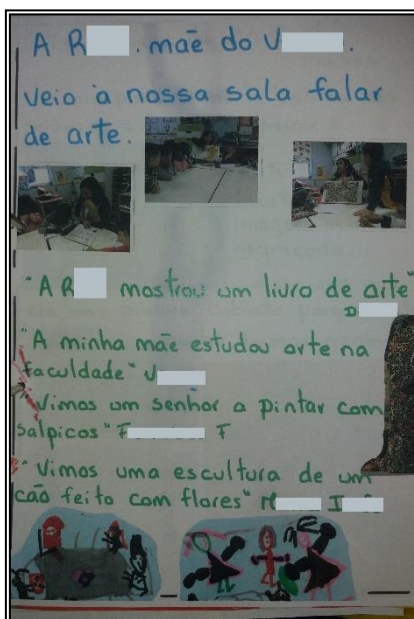 A R. mãe do V.
veio à nossa sala falar
de arte.
"A R mostrou um livro de arte"
D
"A minha mãe estudou arte na
faculdade" V
"Vimos um senhor a pintar com
salpicos" F F
"Vimos uma escultura de um
cão feito com flores" M I